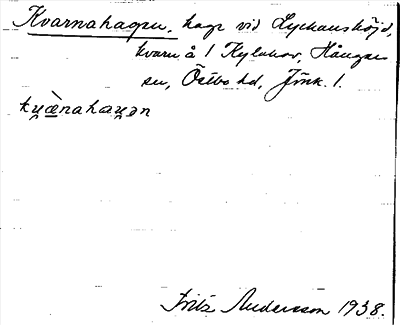 Kvarnahagen, hage vid Lyckanshöjd,
kvarn å 1 Kylahov, Hånger
sn, Östbo hd, Jönk. l.
kṷæ̀nahaɣən
Fritz Andersson 1938.